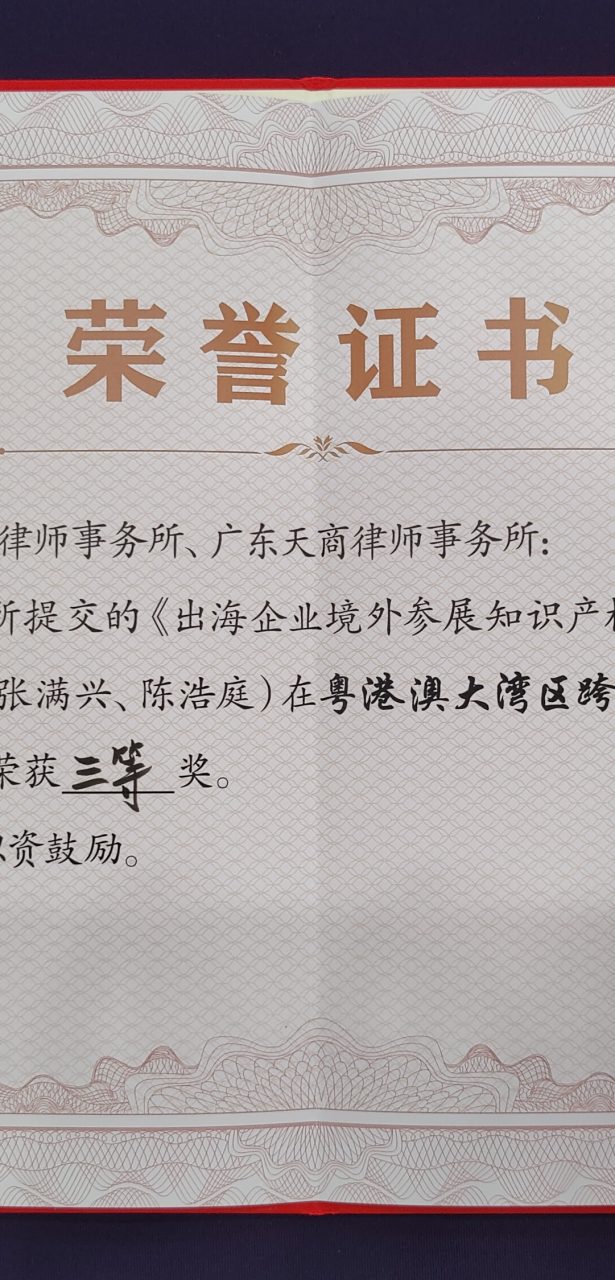 荣誉证书
律师事务所、广东天商律师事务所：
所提交的《出海企业境外参展知识产
张满兴、陈浩庭）在粤港澳大湾区跨
荣获三等奖。
资鼓励。